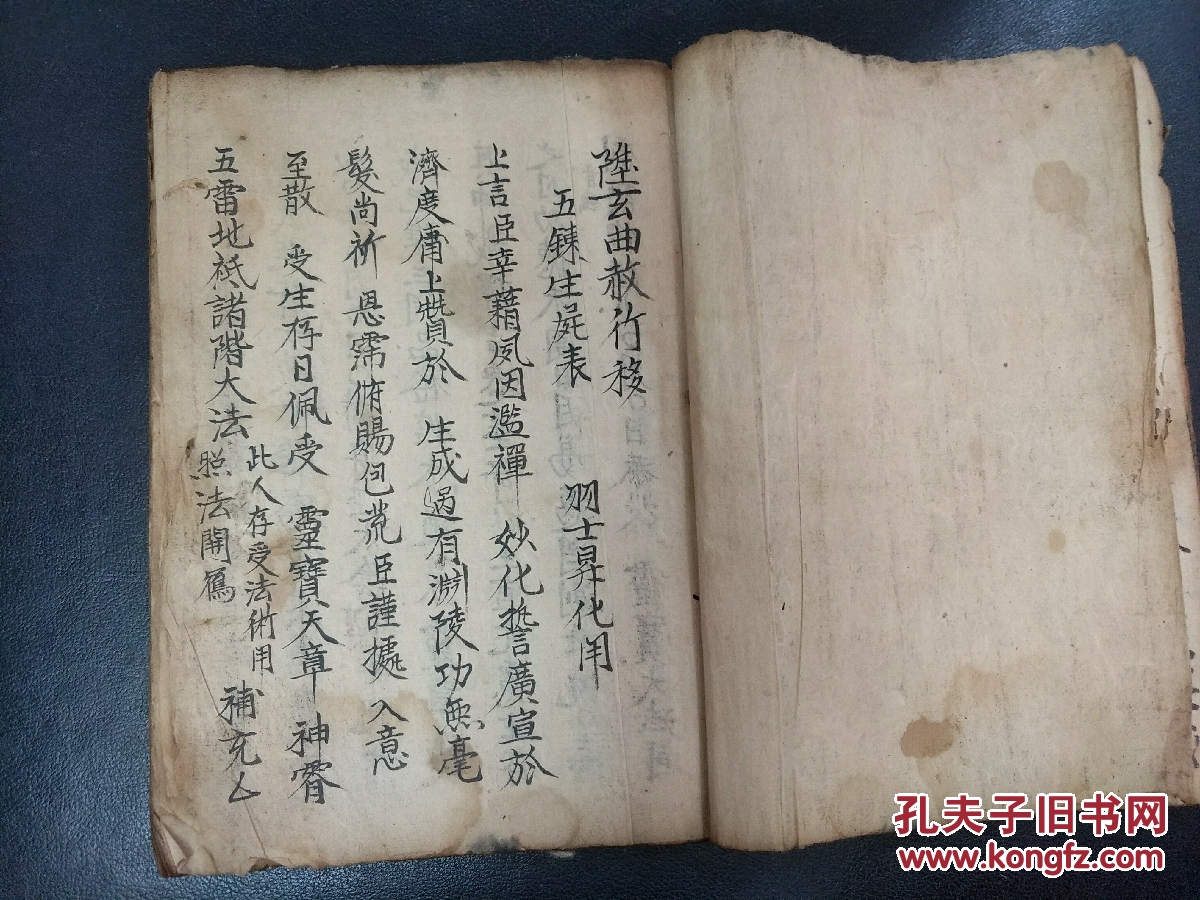 陞玄曲赦行移
五鍊生屍表 羽士昇化用
上言臣幸藉夙因濫襌 妙化誓廣宣於
濟度庸上贊於 生成過有渊陵功無毫
髮尚祈 恩霈俯賜包荒臣謹據入意
至散 受生存日佩受 靈寶天章 神霄
五雷地祇諸階大法 此人存受法術用 照法開寫 補充厶
孔夫子旧书网
www.kongfz.com